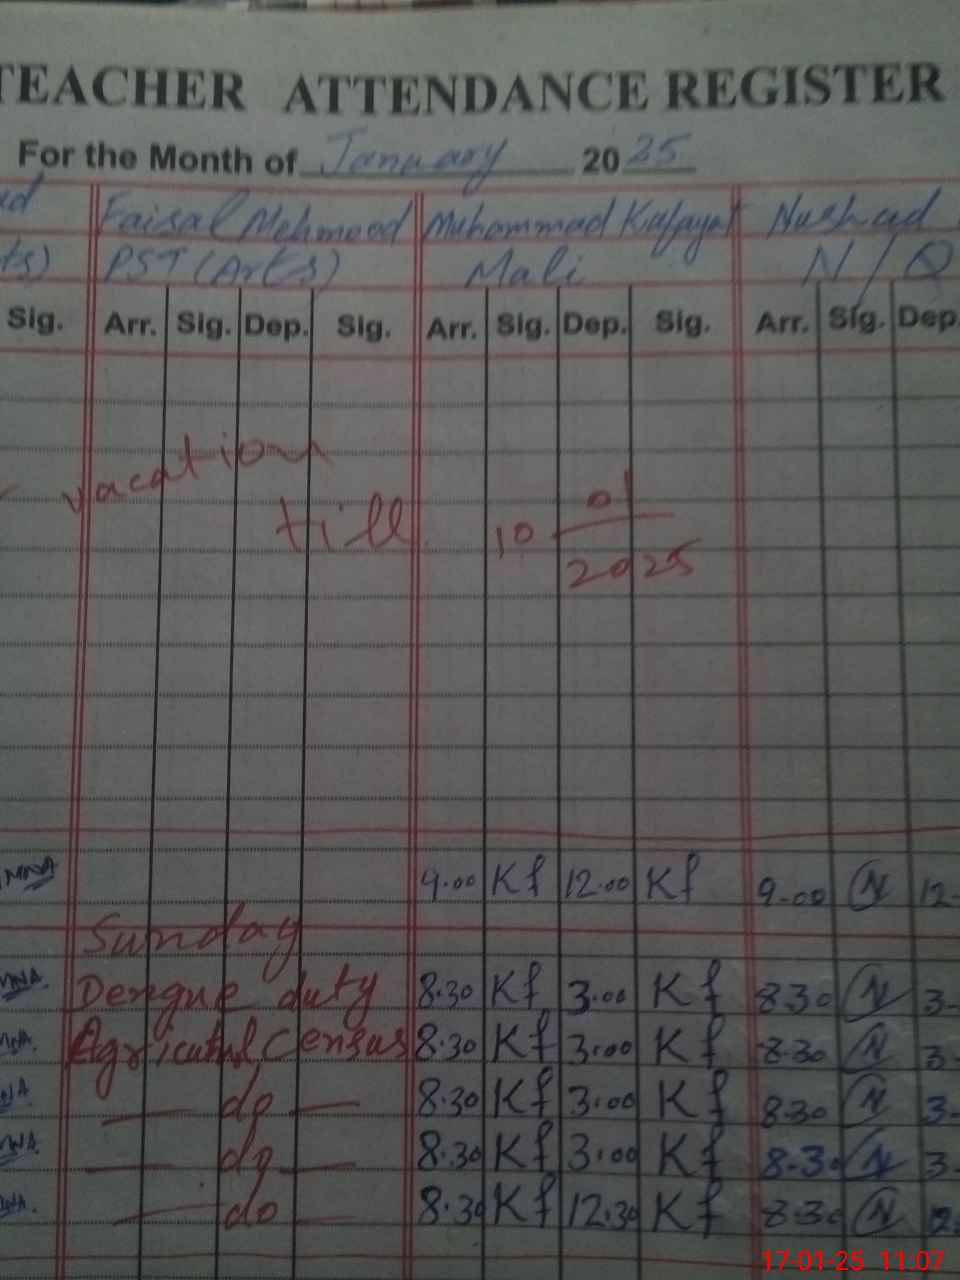 TEACHER ATTENDANCE REGISTER
For the Month of January 2025
Faisal Mehmood Muhammad Kafayat Nushad
ts) PST (Arts) Mali N/Q
Sig. Arr. Sig. Dep. Sig. Arr. Sig. Dep. Sig. Arr. Sig. Dep
vacation
till 10 01
2025
MNA 9.00 Kf 12.00 Kf 9.00 N 12.
Sunday
MNA. Dengue duty 8.30 Kf 3.00 Kf 8.30 N 3.
Census 8.30 Kf 3.00 Kf 8.30 N 3.
— do — 8.30 Kf 3.00 Kf 8.30 N 3.
— do — 8.30 Kf 3.00 Kf 8.30 N 3.
— do — 8.30 Kf 12.30 Kf 8.30 N
17-01-25 11:07